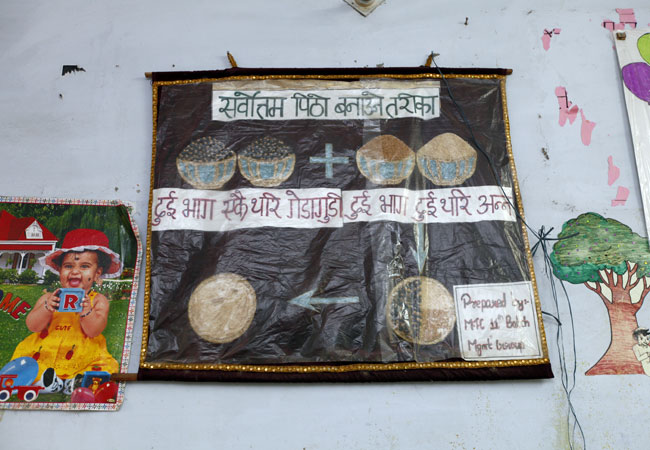 सर्वोतम पिठो बनाउने तरीका
दुई भाग एकै थरि गेडागुडी दुई भाग दुई थरि अन्न
Prepared by:-
MTC 11th Batch
Mgmt Group
R